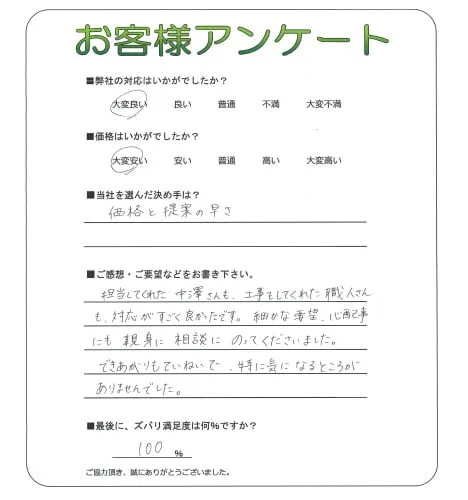 お客様アンケート
■弊社の対応はいかがでしたか？
大変良い 良い 普通 不満 大変不満
■価格はいかがでしたか？
大変安い 安い 普通 高い 大変高い
■当社を選んだ決め手は？
価格と提案の早さ
■ご感想・ご要望などをお書き下さい。
担当してくれた中澤さんも、工事をしてくれた職人さん
も、対応がすごく良かったです。細かな要望、心配事
にも親身に相談にのってくださいました。
できあがりもていねいで、特に気になるところが
ありませんでした。
■最後に、ズバリ満足度は何％ですか？
100 ％
ご協力頂き、誠にありがとうございました。